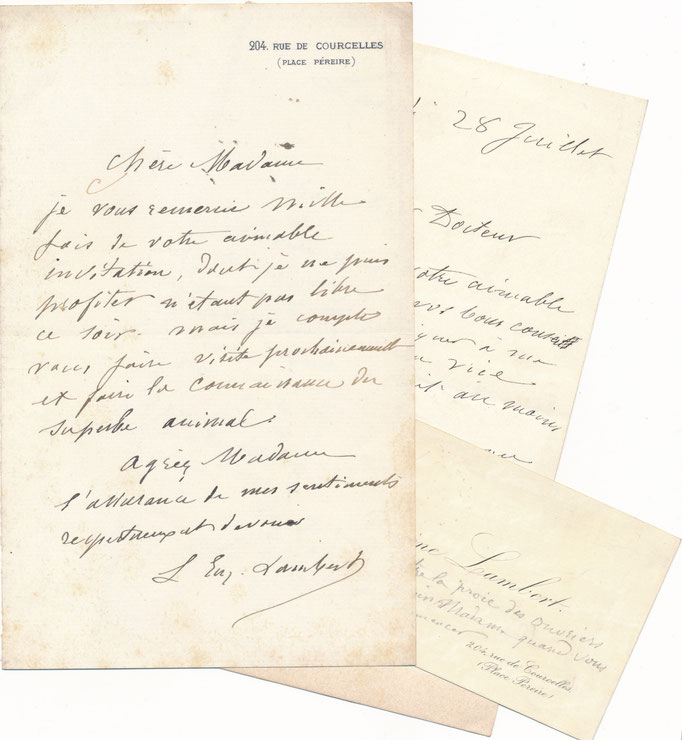 204. RUE DE COURCELLES
(PLACE PÉREIRE)
Chère Madame
je vous remercie mille
fois de votre aimable
invitation, dont je ne puis
profiter n'étant pas libre
ce soir. mais je compte
vous faire visite prochainement
et faire la connaissance du
superbe animal.
Agréez Madame
l'assurance de mes sentiments
respectueux et dévoués
L Eug. Lambert
28 Juillet
Docteur
votre aimable
vos bons conseils
à ma
vice
au moins
Lambert.
la proie des ouvriers
Madame quand vous
204, rue de Courcelles.
(Place Péreire)